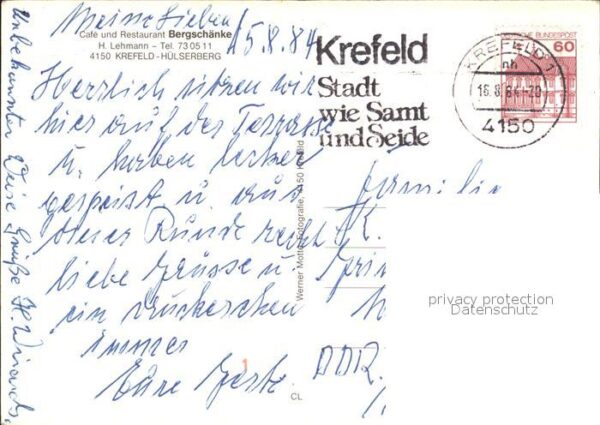 Meine Lieben!
Café und Restaurant Bergschänke
H. Lehmann – Tel. 73 05 11
4150 KREFELD-HÜLSERBERG
15.8.84
Herrlich sitzen wir
hier auf der Terrasse
u. haben lecker
gespeist u. aus
dieser Runde recht
liebe Grüsse u.
ein Drückerchen
Immer
Eure
Unbekannter Weise Grüße H.
Werner Motto, Fotografie, 4150 Krefeld
CL
1
Krefeld
Stadt
wie Samt
und Seide
KREFELD 1
nh
16.8.84-20
4150
DEUTSCHE BUNDESPOST
60
Familie
K.
DDR
privacy protection
Datenschutz